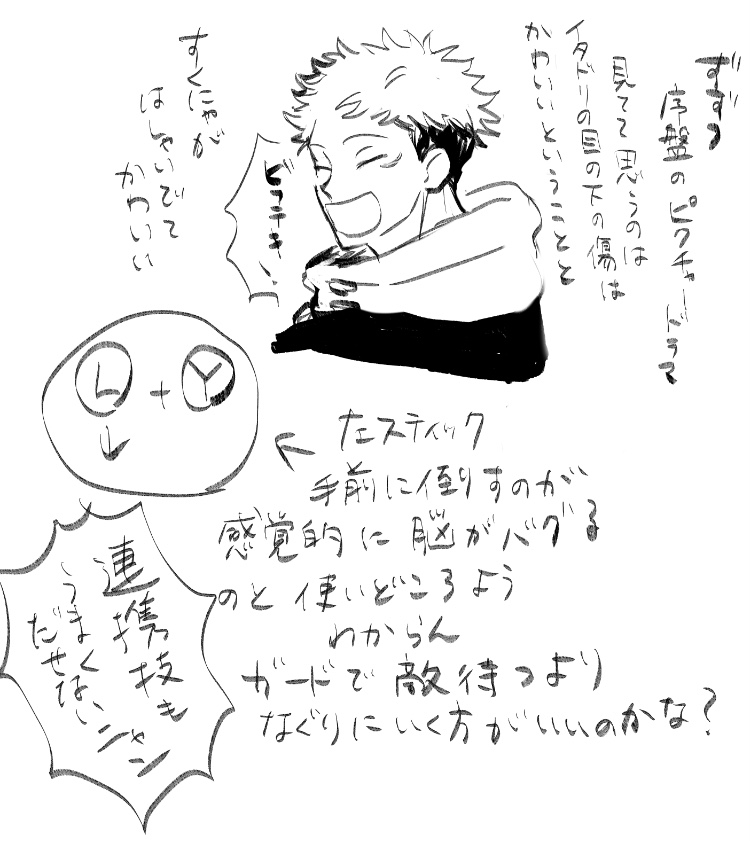 ずずっ
序盤のピクチャードラマ
見てて思うのは
イタドリの目の下の傷は
かわいいということと
すくにゃが
はしゃいでて
かわいい
L + Y
↓
← 左スティック
手前に倒すのが
感覚的に脳がバグる
のと使いどころよう
わからん
ガードで敵待つより
なぐりにいく方がいいのかな?
連携技も
うまく
だせない
ジャン